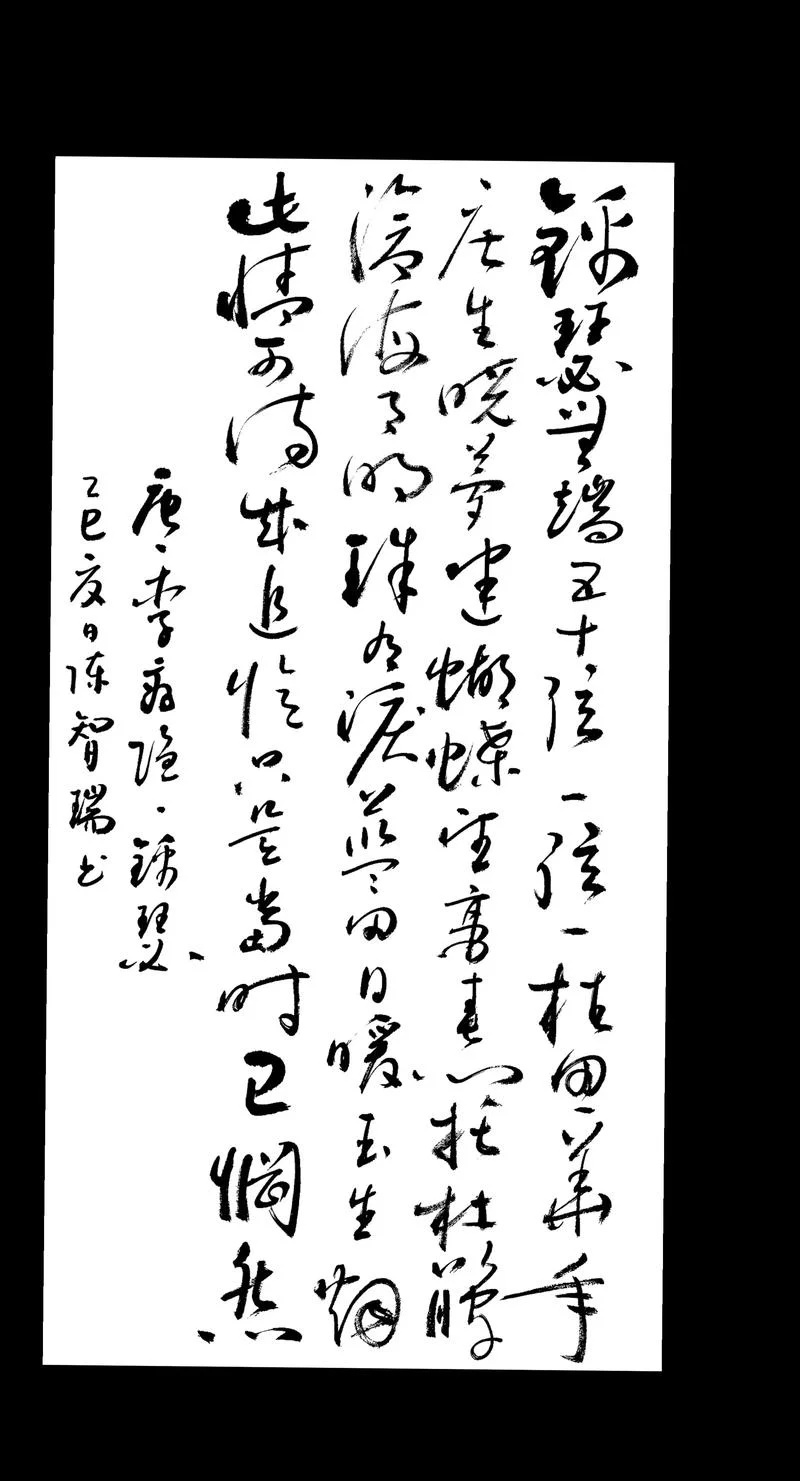 錦瑟無端五十弦一弦一柱思華年
庄生曉夢迷蝴蝶望帝春心托杜鵑
滄海月明珠有淚藍田日暖玉生烟
此情可待成追憶只是當時已惘然
唐·李商隐·錦瑟
乙巳夏日陈智瑞书